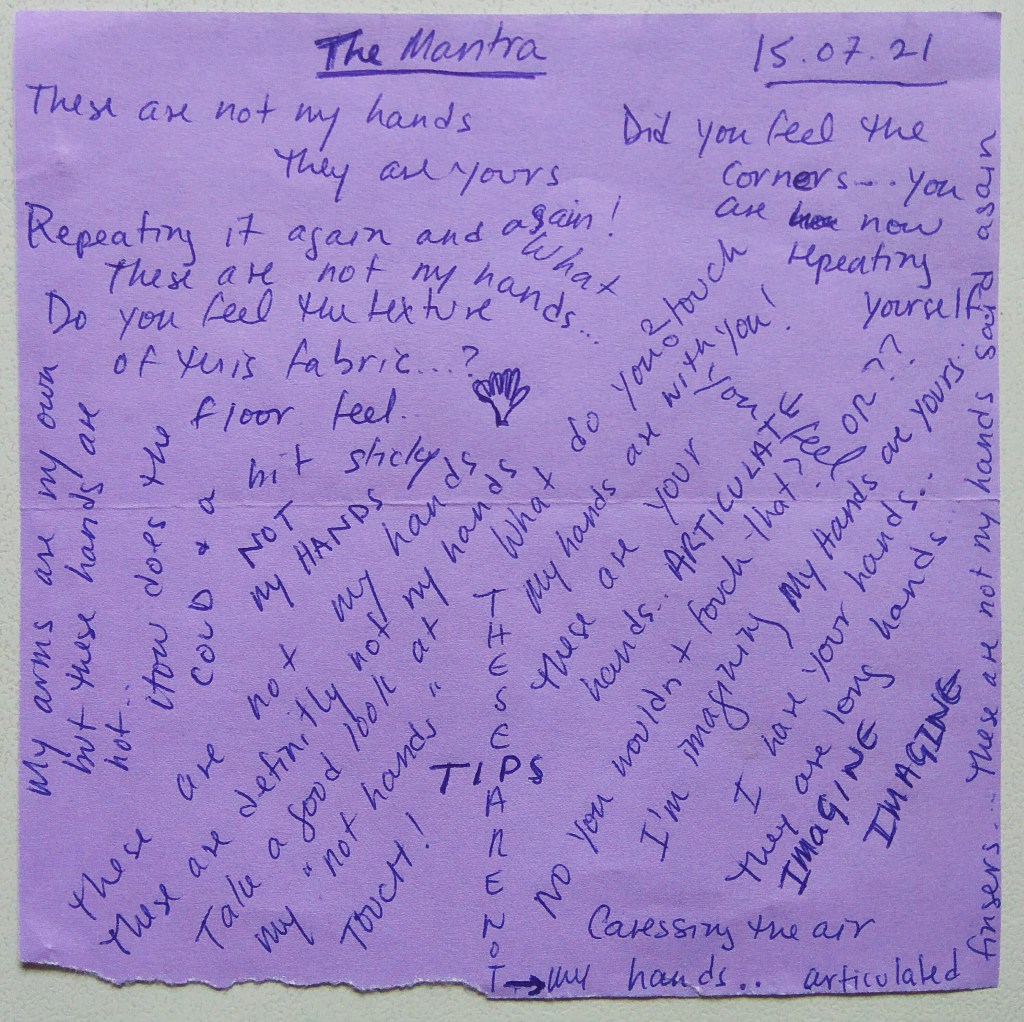 The Mantra
15.07.21
These are not my hands
They are yours
Repeating it again and again!
These are not my hands...
What
Do you feel the texture
of this fabric....?
Did you feel the
corners... you
are now
repeating
yourself
My arms are my own
but these hands are
not..
How does the
floor feel.
COLD & a
bit sticky
NOT
my HANDS
These are not my hands
These are definitly not my hands
Take a good look at my hands
my "not hands"
TOUCH!
THESE
TIPS
ARE NOT
→ my hands.. articulated
fingers... These are not my hands said again
What do you touch
My hands are with you!
These are your
hands.. ARTICULATE
you feel
No you wouldn't touch that? OR??
I'm imagining My Hands are yours..
I have your hands..
They are long hands...
IMAGINE
IMAGINE
Caressing the air